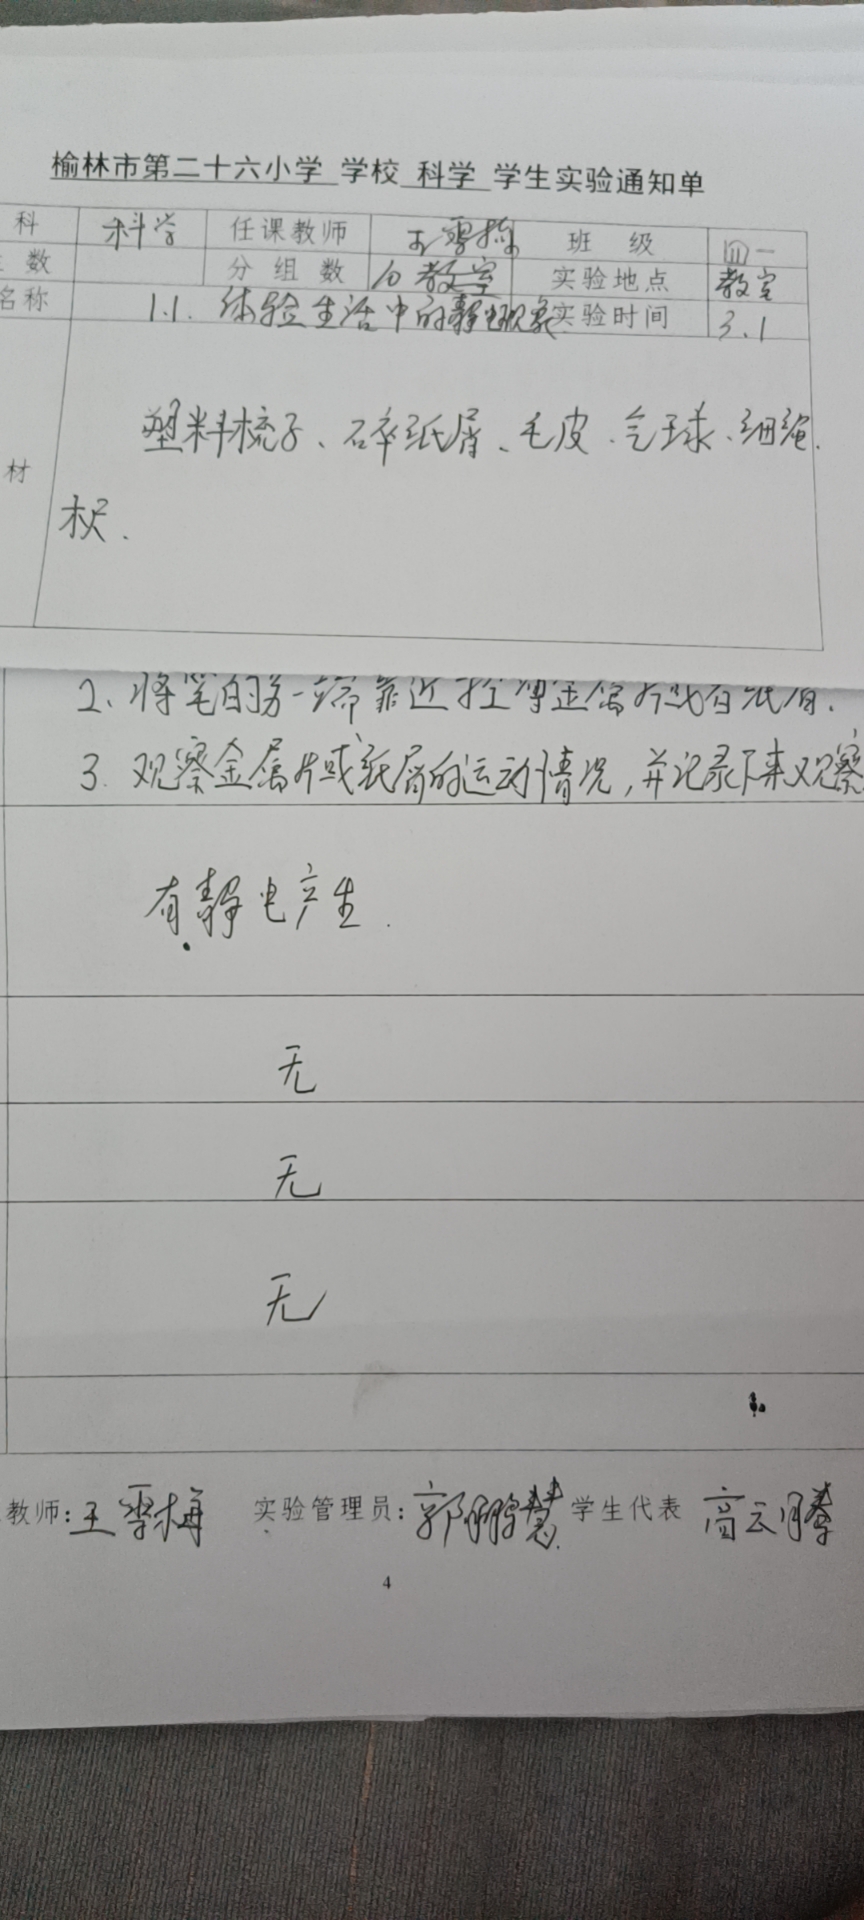 榆林市第二十六小学 学校 科学 学生实验通知单
科 科学 任课教师 班 级 四一
数 分 组 数 教室 实验地点 教室
名称 1.1. 体验生活中的静电现象 实验时间 3.1
塑料梳子、碎纸屑、毛皮、气球、细绳.
材
2、将笔的另一端靠近
3. 观察金属片或纸屑的运动情况,并记录下来观察
有静电产生.
无
无
无
教师:王雪梅 实验管理员:郭鹏慧 学生代表 高云腾
4